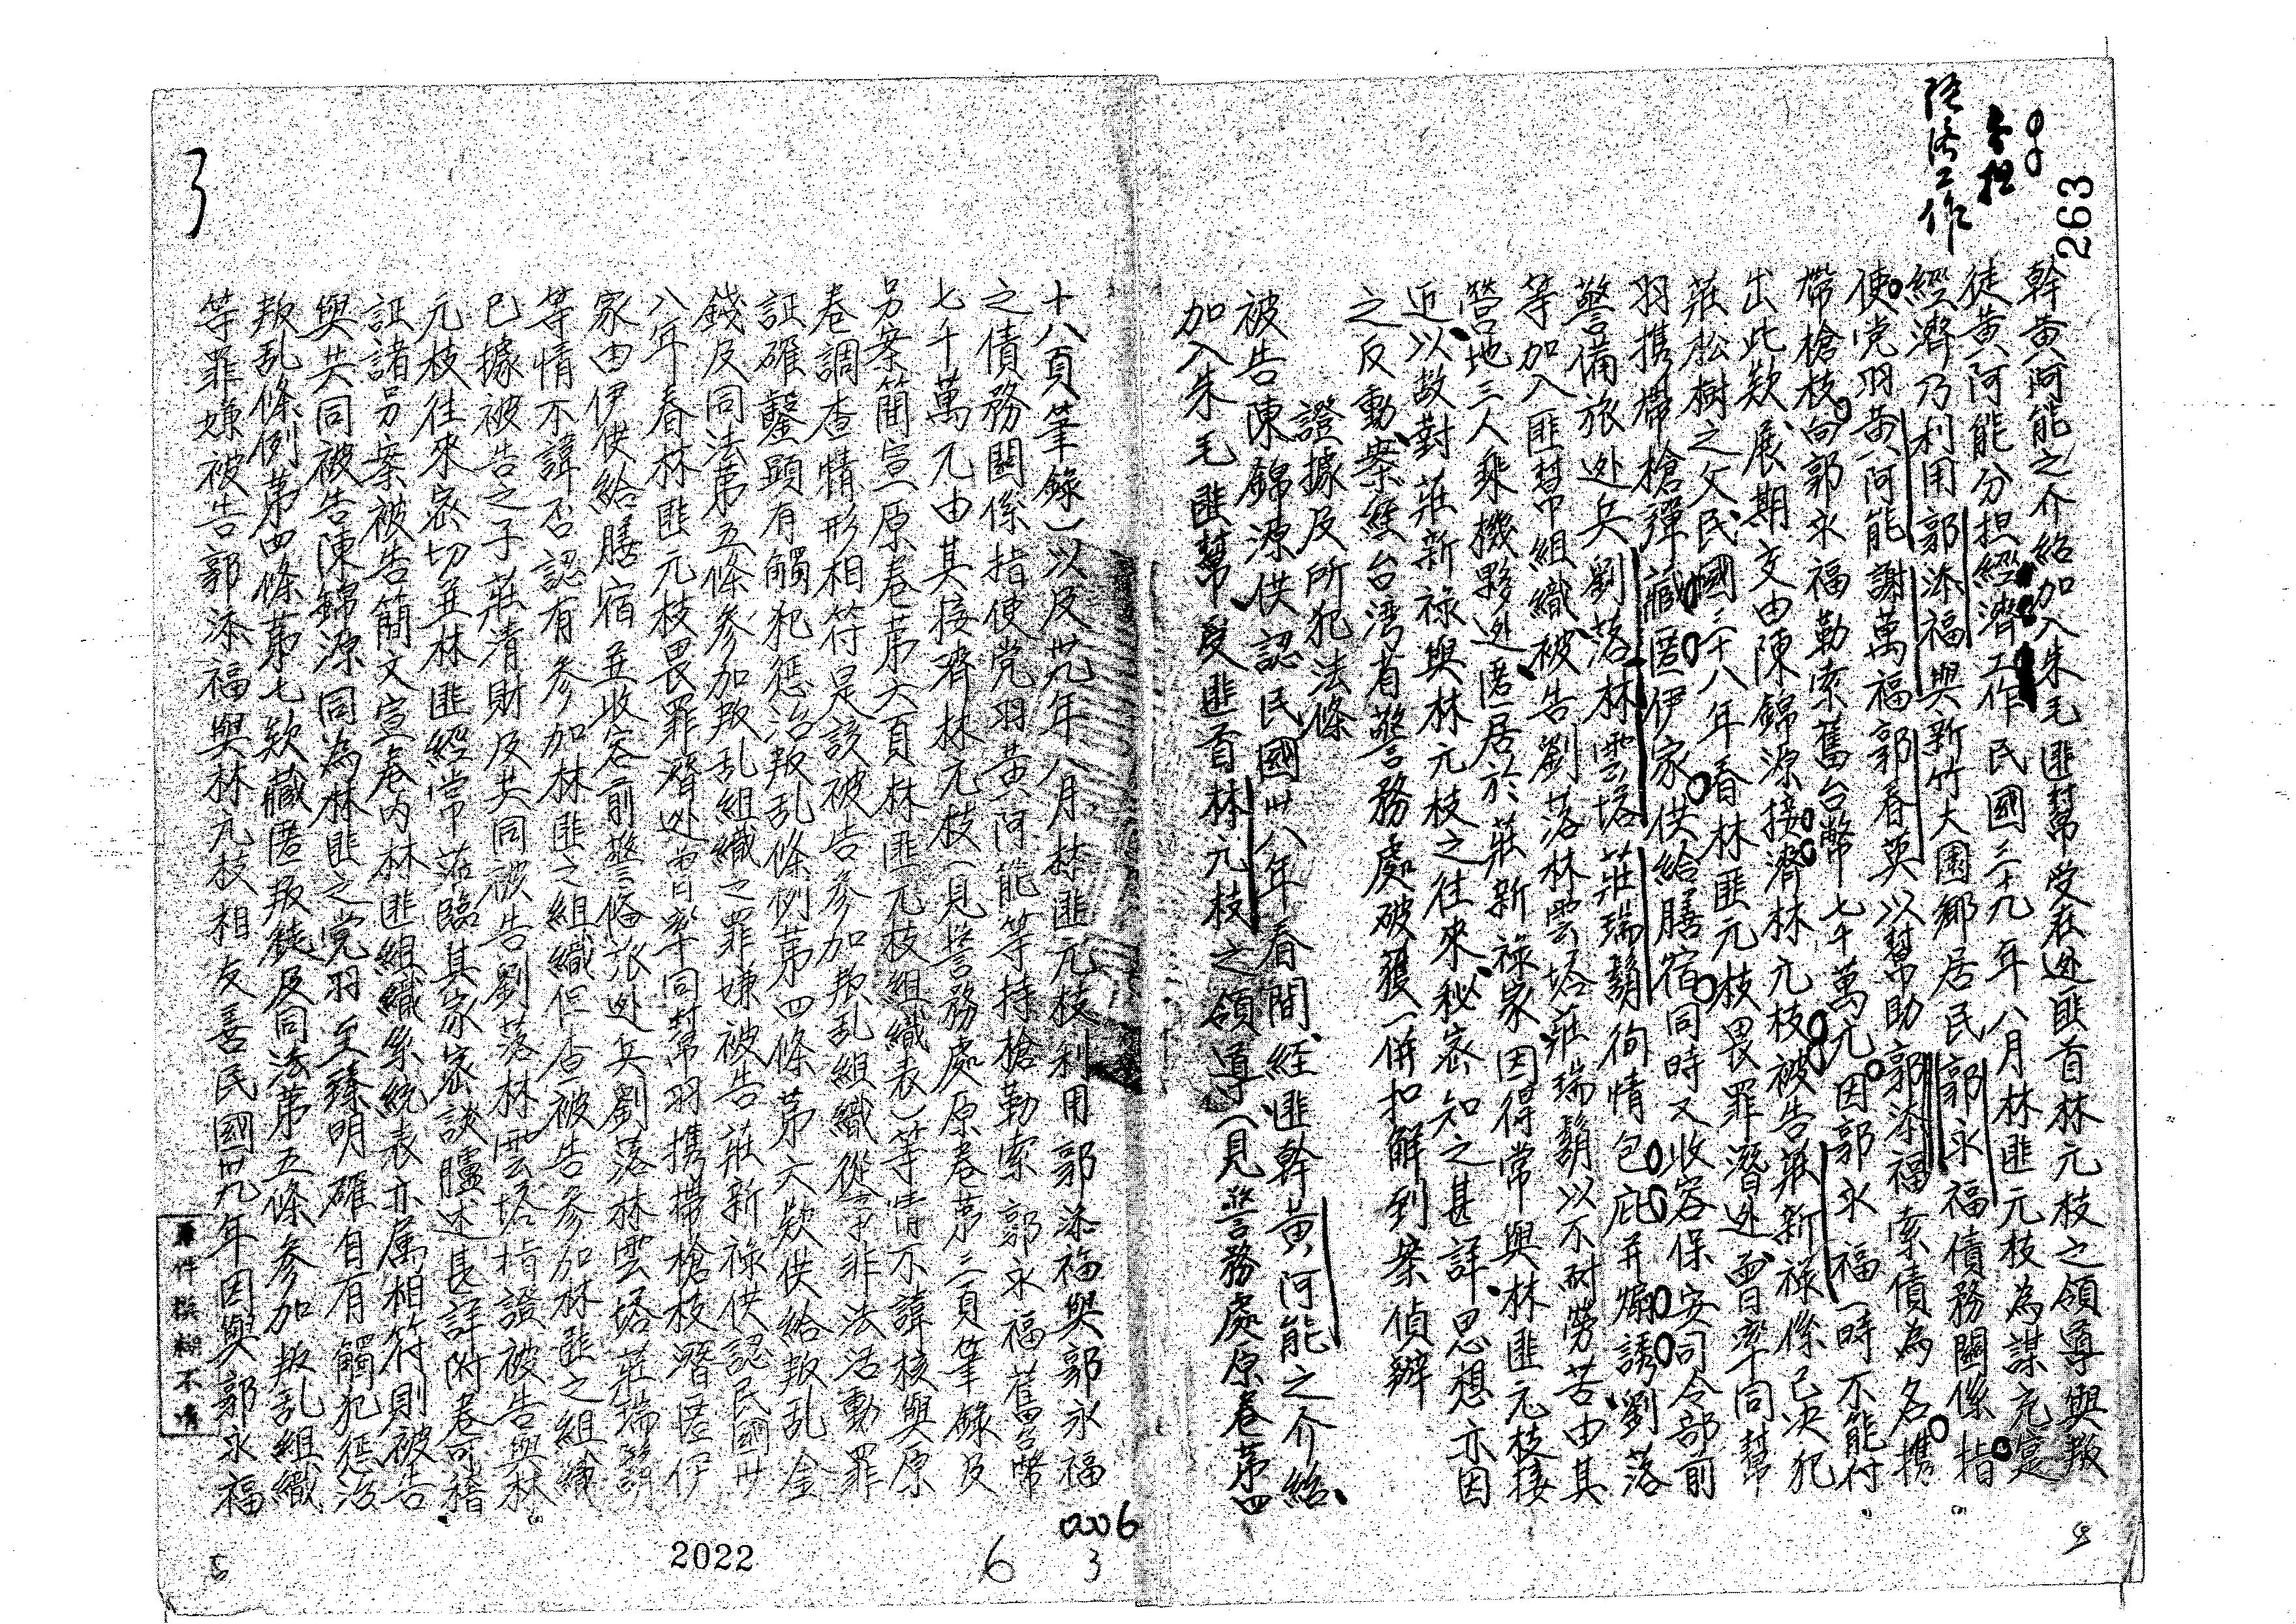 263
分担
經濟工作
幹黃阿能之介紹加入朱毛匪幫受在逃匪首林元枝之領導與叛
徒黃阿能分担經濟工作民國三十九年八月林匪元枝為謀充寔
經濟乃利用郭添福與新竹大園鄉居民郭永福債務關係指
使党羽黃阿能謝萬福郭春英以幫助郭添福索債為名携
帶槍枝向郭永福勒索舊台幣七千萬元因郭永福一時不能付
出此款展期交由陳錦源接濟林元枝被告莊新祿係已決犯
莊松樹之父民國三十八年春林匪元枝畏罪潛逃曾率同幫
羽携帶槍彈藏匿伊家供給膳宿同時又收容保安司令部前
警備旅逃兵劉落林雲塔莊瑞鬍徇情包庇并煽誘劉落
等加入匪幫組織被告劉落林雲塔莊瑞鬍以不耐勞苦由其
營地三人乘機夥逃匿居於莊新祿家因得常與林匪元枝接
近以故對莊新祿與林元枝之往來秘密知之甚詳思想亦因
之反動案經台湾省警務處破獲一併扣解到案偵辦
證據及所犯法條
被告陳錦源供認民國卅八年春間經匪幹黃阿能之介紹
加入朱毛匪幫受匪首林元枝之領導(見警務處原卷第四
十八頁筆錄)以及卅九年八月林匪元枝利用郭添福與郭永福
之債務關係指使党羽黃阿能等持槍勒索郭永福舊台幣
七千萬元由其接濟林元枝(見警務處原卷第三頁筆錄及
另案簡宣原卷第六頁林匪元枝組織表)等情不諱核與原
卷調查情形相符是該被告參加叛乱組織從事非法活動罪
証確鑿顕有觸犯惩治叛乱條例第四條第六款供給叛乱金
錢及同法第五條參加叛乱組織之罪嫌被告莊新祿供認民國卅
八年春林匪元枝畏罪潛逃曾率同幫羽携帶槍枝潛匿伊
家由伊供給膳宿並收容前警俻旅逃兵劉落林雲塔莊瑞鬍
等情不諱否認有參加林匪之組織但查被告參加林匪之組織
已據被告之子莊清財及共同被告劉落林雲塔指證被告與林
元枝往來密切並林匪經常蒞臨其家密談臚述甚詳附卷可稽
証諸另案被告簡文宣卷内林匪組織系統表亦属相符則被告
與共同被告陳錦源同為林匪之党羽至臻明確自有觸犯惩治
叛乱條例第四條第七款藏匿叛徒及同法第五條參加叛乱組織
等罪嫌被告郭添福與林元枝相友善民國卅九年因與郭永福
原件模糊不清
0006
2022
6
3